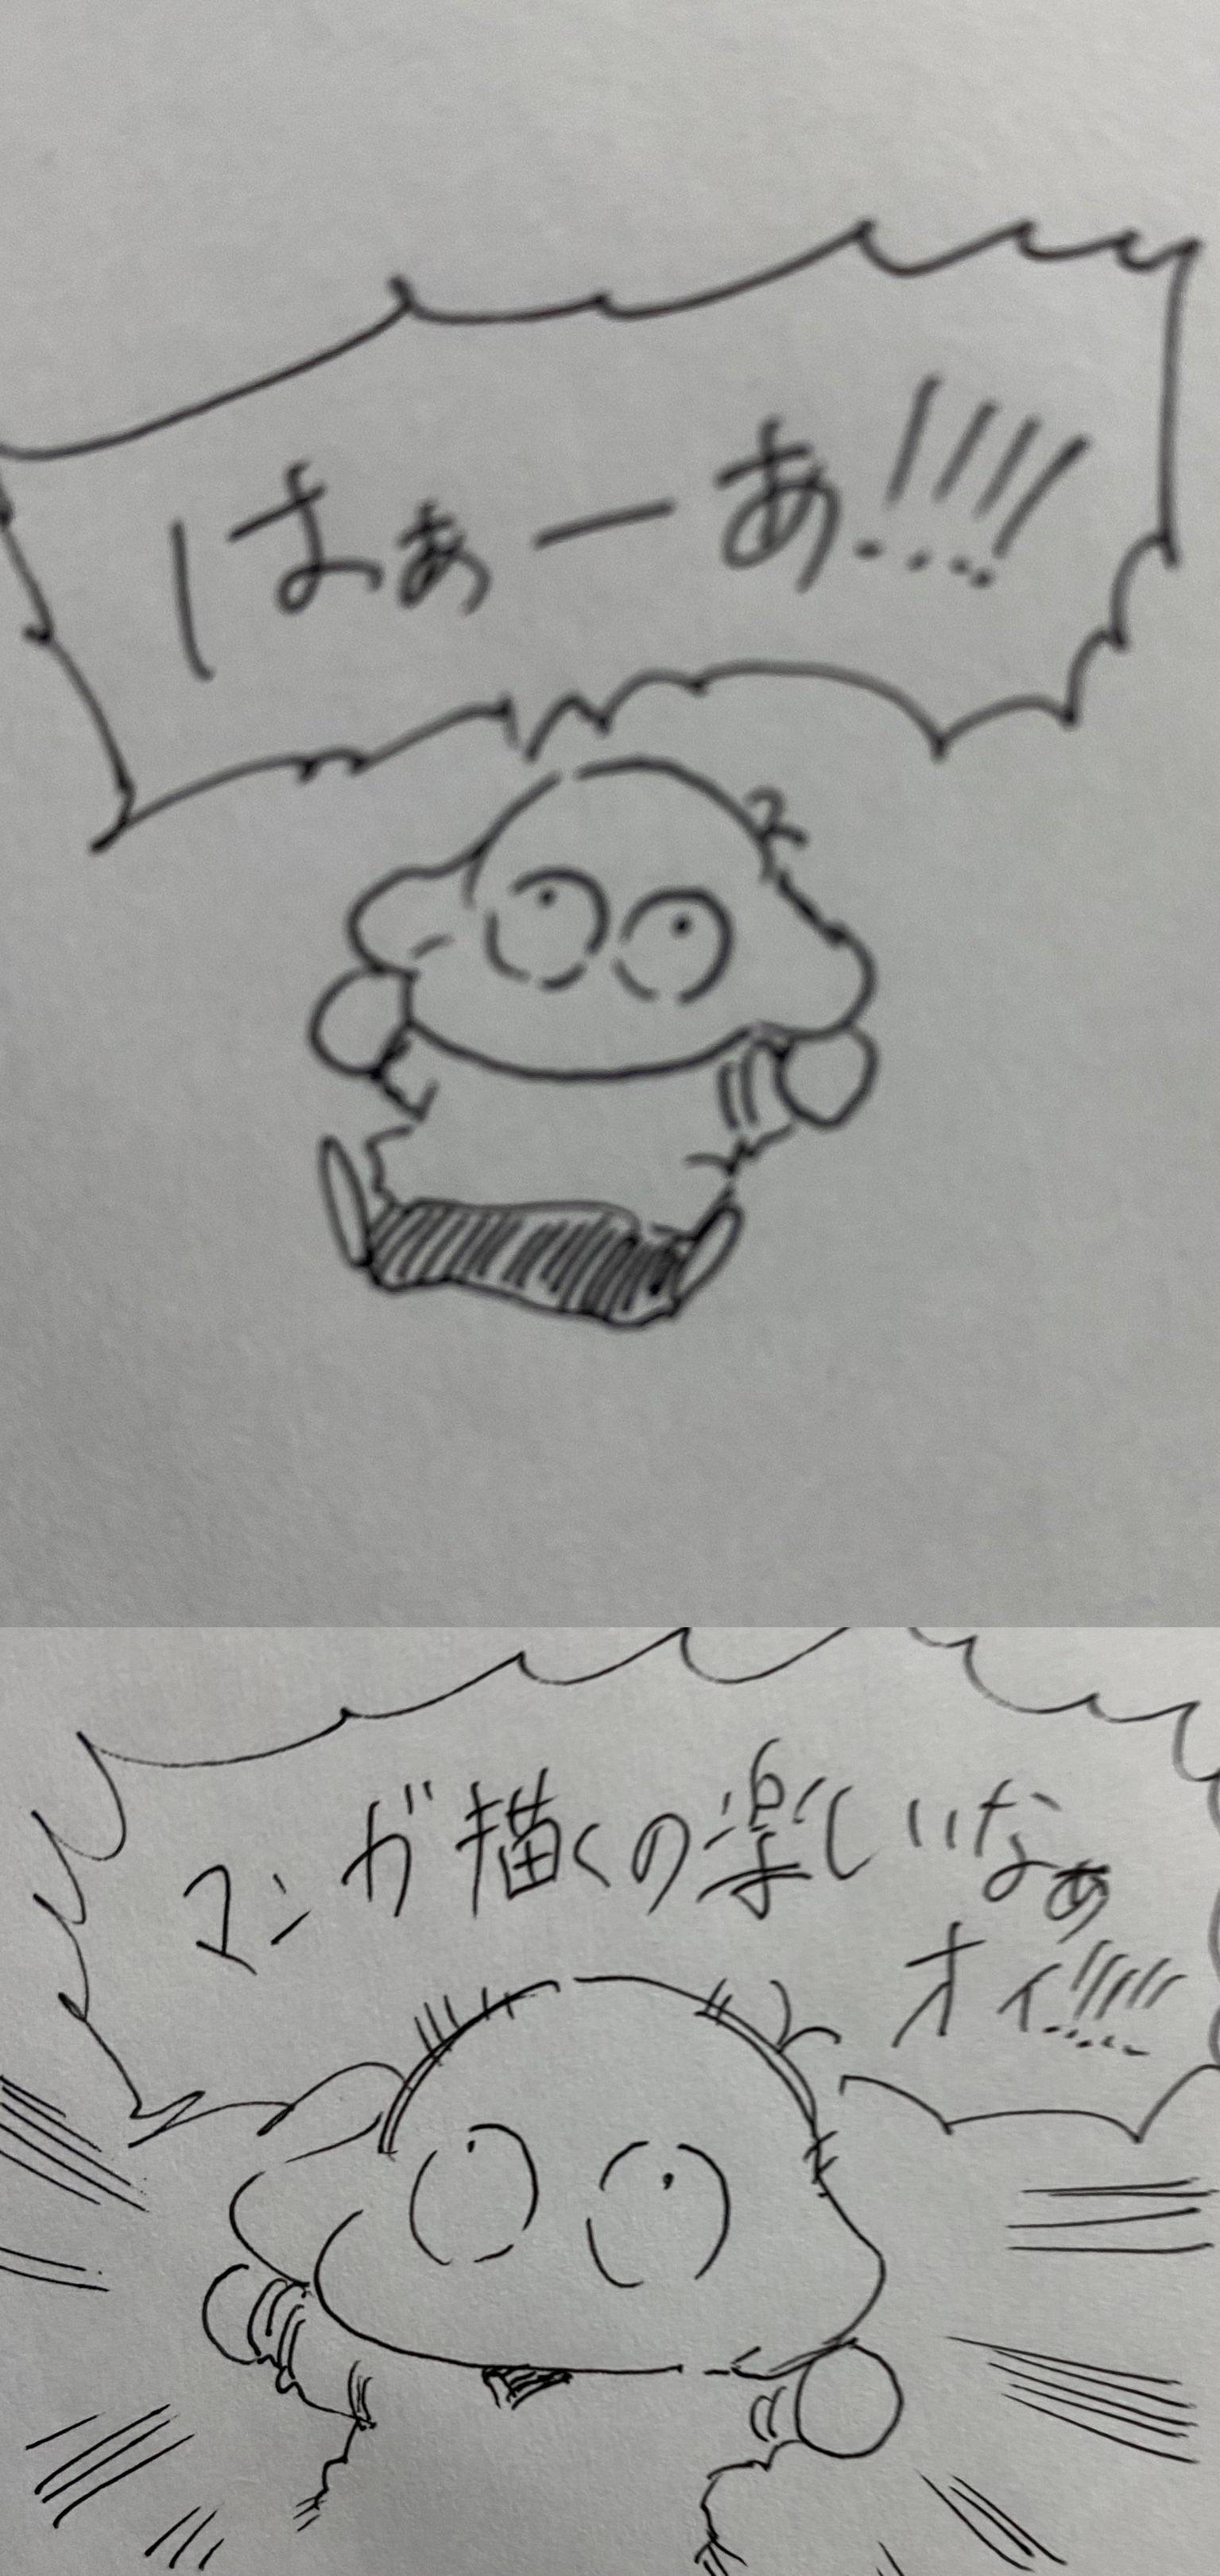 はぁーあ!!!!
マンガ描くの楽しいなぁ
オイ!!!!!